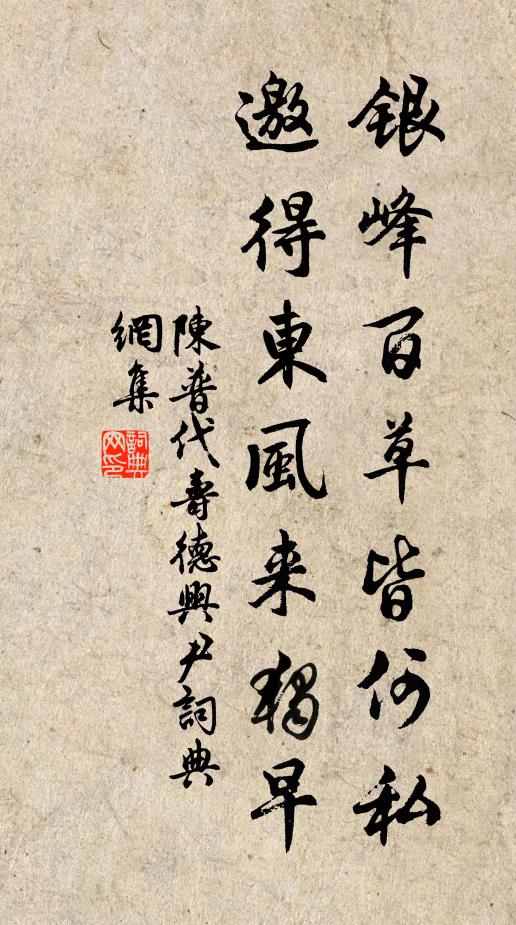 銀峰百草皆何私
邀得東風来獨早
陳普代壽德興尹詞典
網集
詞典网印